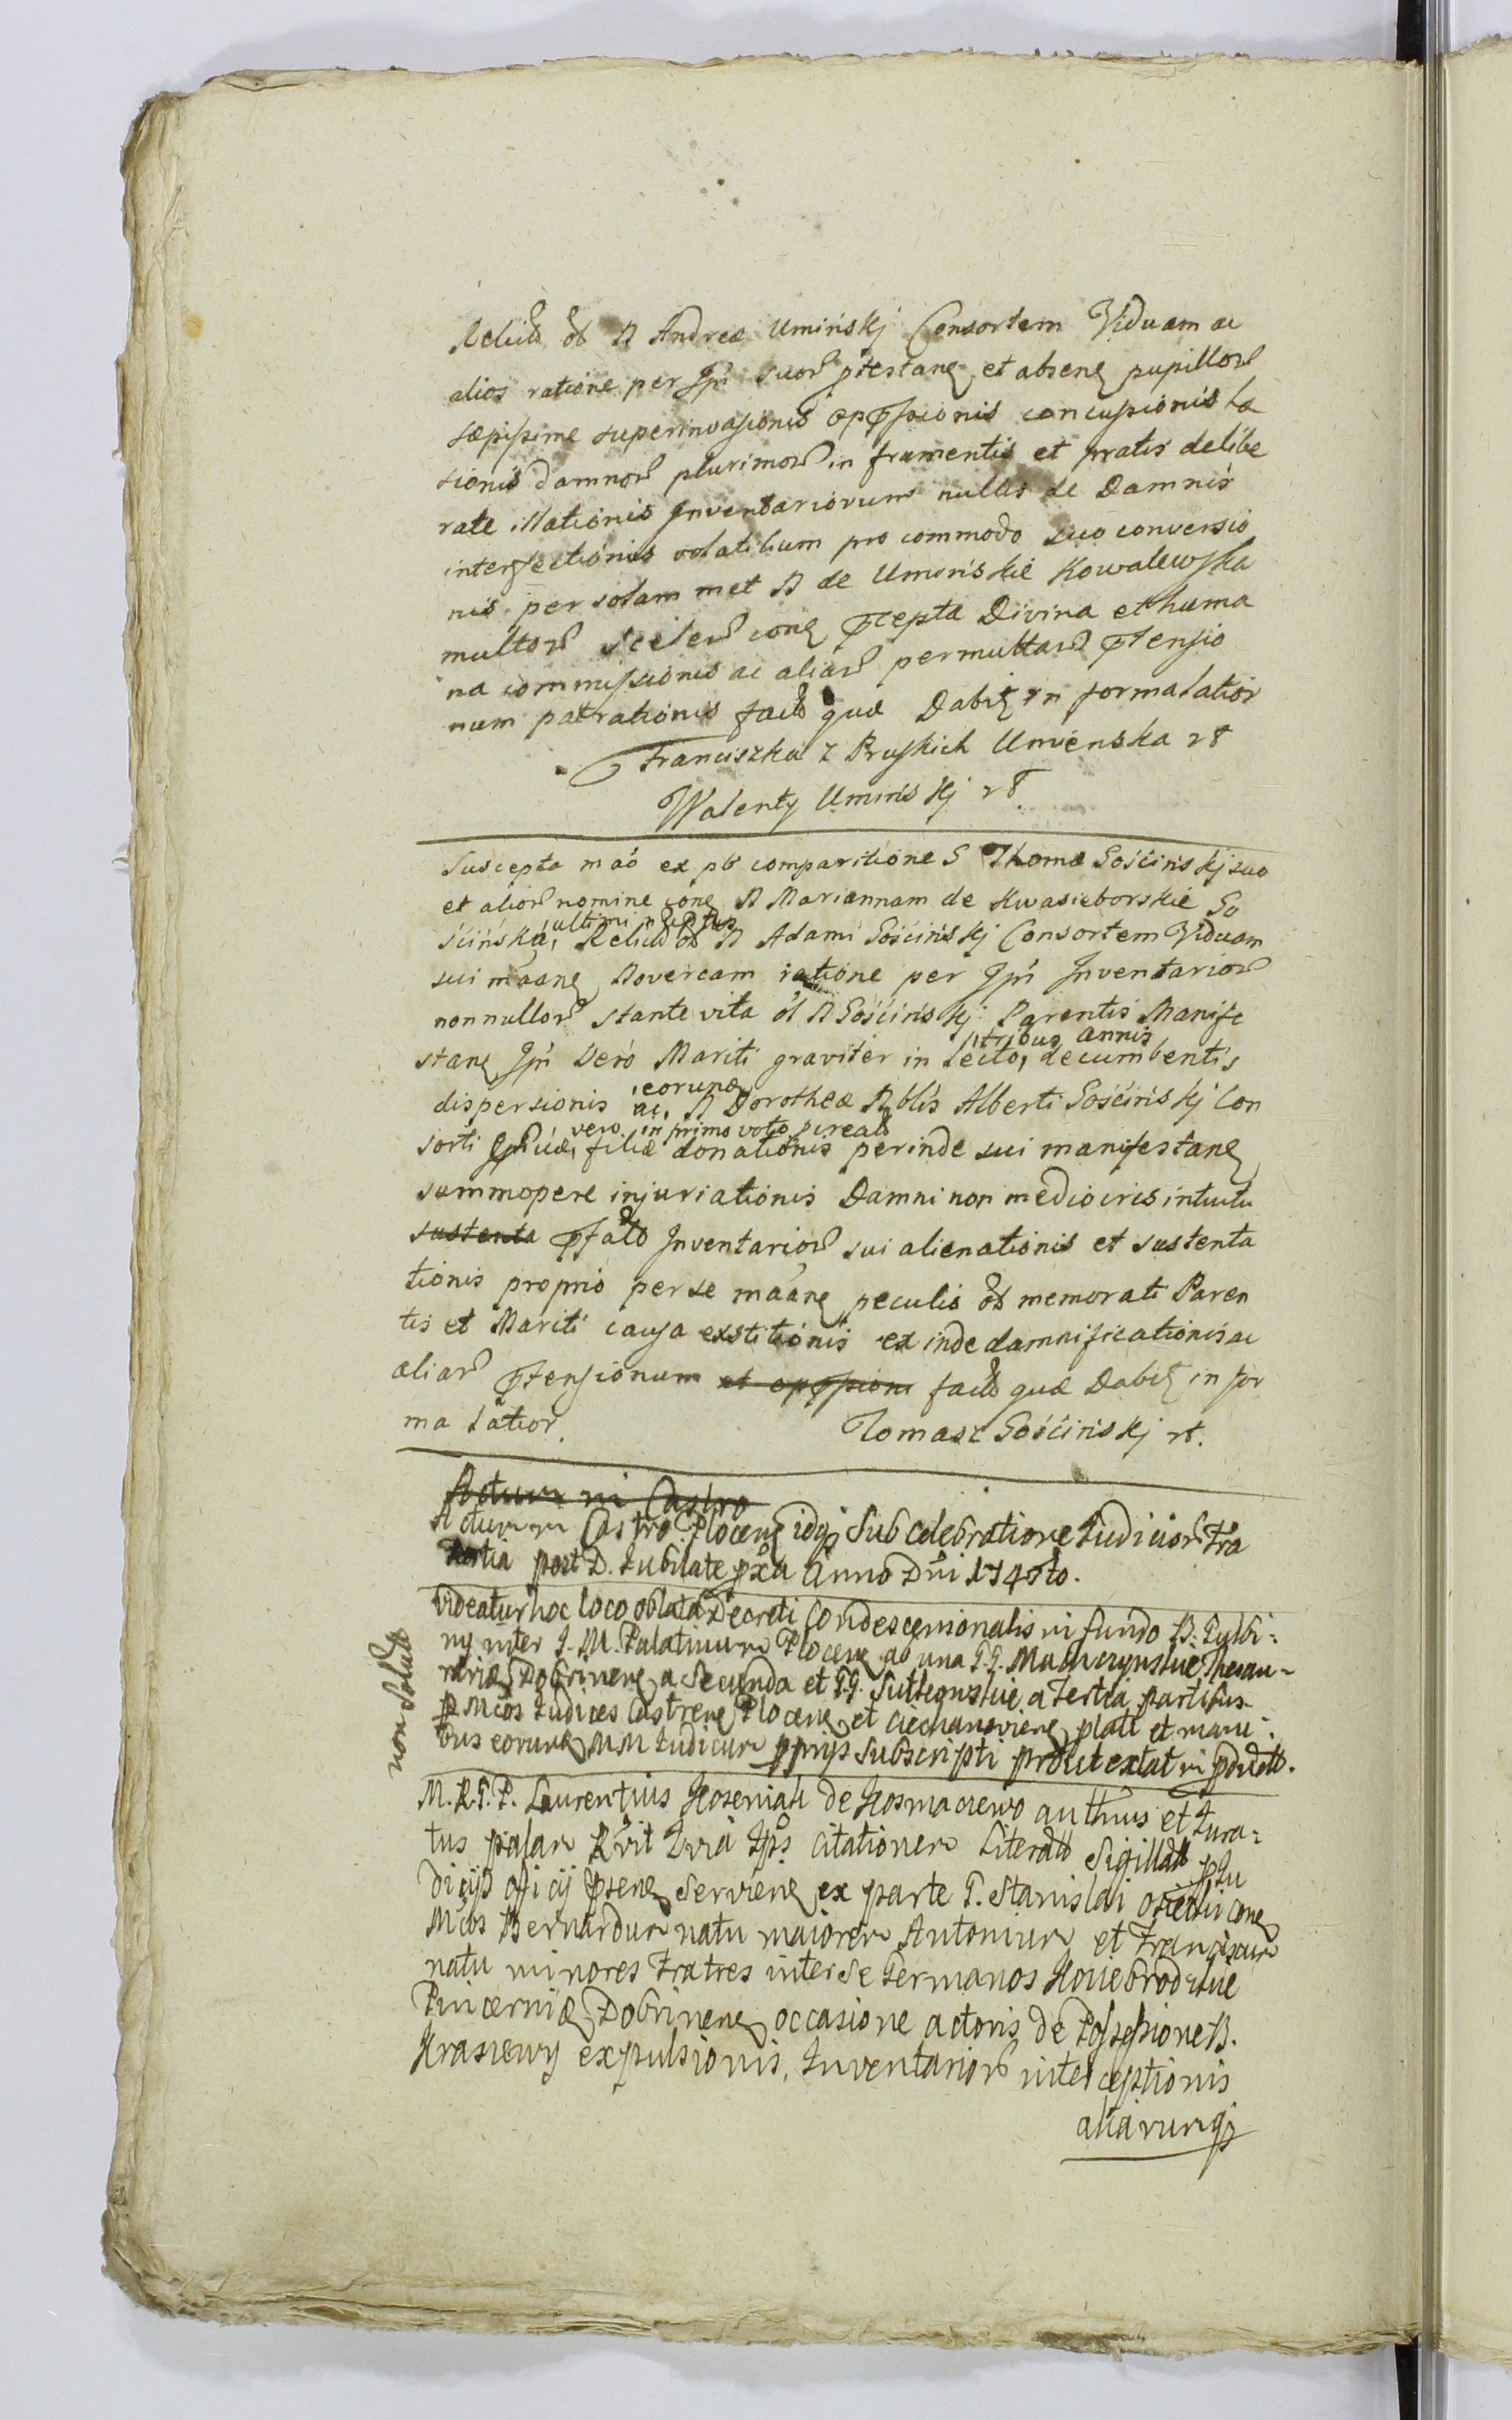 Relictã ol N Andreæ Umińskj Consortem Viduam ac
alios ratione per Ipsã suorũ ptestanẹ et absenẹ pupillorũ
sæpissime superinvasionis oppssionis concussionis læ
sionis damnorũ plurimorũ in frumentis et pratis delibe
rate illationis Inventariorum nullis de Damnis
interfectionis volatilium pro commodo suo conversio
nis per solam met N de Umińskie Kowalewska
multorũ scelerũ conẹ pcepta Divina et huma
na commissionis ac aliarũ permultarũ ptensio
num patrationis factã quæ Dabitẹ in forma latior
Franciszka z Pruskich Umienska
Walenty Umińskj
Suscepta mão ex pb comparitione G Thomæ Gościńskj suo
et aliorũ nomine conẹ N Mariannam de Kwasieborskie Go
ścińską, ultimi nuptus Relictã ol N Adami Gościńskj Consortem Viduam
sui mãanẹ Novercam ratione per Ipsã Inventariorũ
nonnullorũ stante vita ol N Gościńskj Parentis Manife
stanẹ Ipsã Vero Mariti graviter in lecto, tribus annis decumbentis
dispersionis ac, eorunẹ N Dorotheæ Nblis Alberti Gościńskj Con
sorti Ipsiusæ, vero in primo voto pcreatã filiæ donationis perinde sui manifestanẹ
summopere injuriationis Damni non mediocris intuitu
sustenta pfatã Inventariorũ sui alienationis et sustenta
tionis proprio per se mãanẹ peculio ol memorati Paren
tis et Mariti causa exstitionis ex inde damnificationis ac
aliarũ ptensionum et oppssionis factã quæ Dabitẹ in for
ma latior. Tomasz Gościńskj
Actum in Castro
Actum in Castro Plocenẹ idqȝ sub celebratione Iudiciorũ Fra
tertia post D. Iubilate pxã Anno Dñi 174
Videatur hoc loco oblata Decreti Condescensionalis in fundo B. Gulbi-
ny inter I. M. Palatinum Plocenẹ ab una GG. Thesau-
rariæ Dobrinenẹ a Secunda et GG. a Tertia partibus
p Mcos Iudices Castrenẹ Plocenẹ et Ciechanovienẹ plati et manu-
bus eorunẹ MM Iudicum pprys subscripti prout extat in
non solut
M. R. G. P. Laurentius Koseniak de Kosmaczewo authus et Iura-
tus palam Rvit citationem Literatã Sigillatã pIu
dicijs officij psenẹ servienẹ ex parte G. Stanislai conẹ
Mcos Bernardum natu maiorem Antonium et Franciscum
natu minores Fratres inter se Germanos
Pincerniæ Dobrinenẹ occasione actoris de Possessione B.
Krasiewy expulsionis, Inventariorũ interceptionis
aliarumqȝ